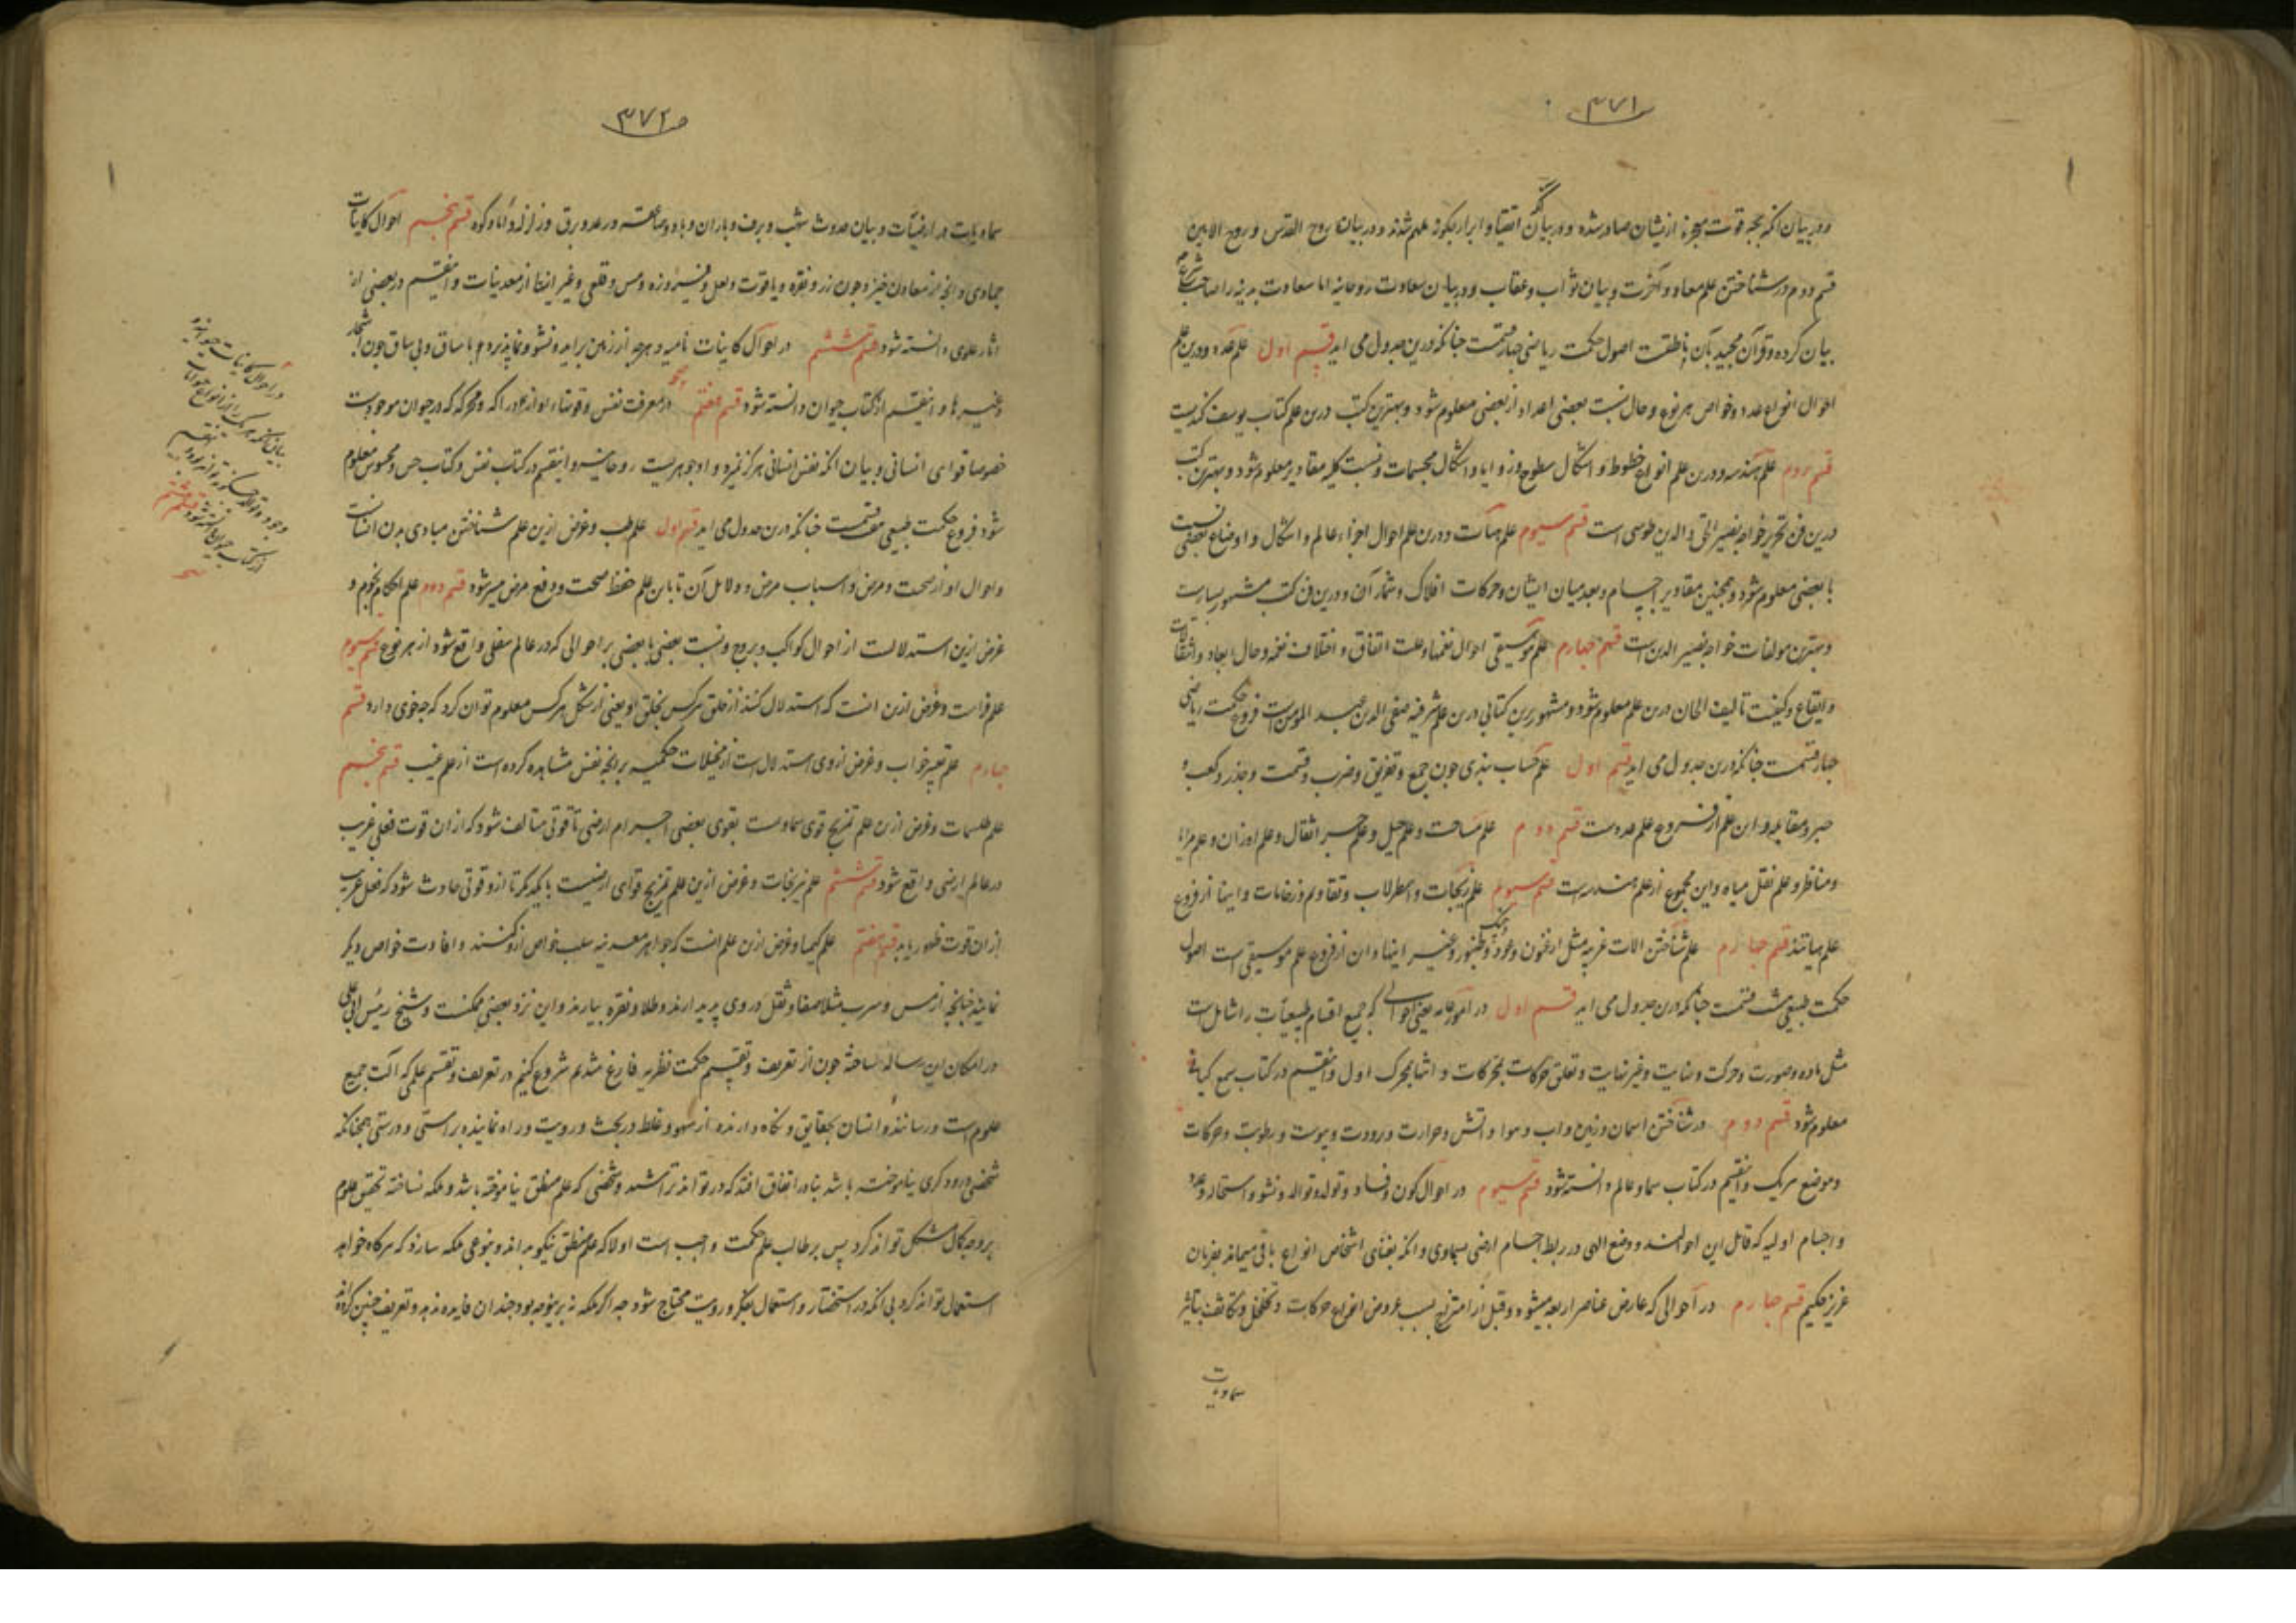 ۳۷۱
ودر بیان انکه بچه قوت معجزه ازیشان صادر شده ودر بیان انکه اتقیا و ابرار چکونه ملهم شدند ودر بیان روح القدس و روح الامین
قسم دوم در شناختن علم معاد و آخرت و بیان ثواب وعقاب ودر بیان سعادت روحانیه اما سعادت بدنیه را صاحب شرع
بیان کرده وقرآن مجید بآن ناطقست اصول حکمت ریاضی چهار قسمت چنانکه درین جدول می اید قسم اول علم عدد ودرین علم
احوال انواع عدد وخواص هر نوع وحال نسبت بعضی اعداد از بعضی معلوم شود وبهترین کتب درین علم کتاب یوسف کندیست
قسم دوم علم هندسه ودرین علم انواع خطوط و اشکال سطوح وزوایا واشکال مجسمات ونسبت کلیه مقادیر معلوم شود وبهترین کتب
درین فن تحریر خواجه نصیر الحق والدین طوسی است قسم سیوم علم هیأت ودرین علم احوال اجزاء عالم واشکال واوضاع بعضی نسبت
با بعضی معلوم شود وهمچنین مقادیر اجسام وبعد میان ایشان وحرکات افلاک وشمار آن ودرین فن کتب مشهور بسیارست
وبهترین مولفات خواجه نصیر الدین است قسم چهارم علم موسیقی احوال نغمها وعلت اتفاق و اختلاف نغمه وحال ابعاد وانتقالات
وایقاع وکیفیت تالیف الحان درین علم معلوم شود ومشهورترین کتابی درین علم شرفیه صفی الدین عبد المومن است فروع حکمت ریاضی
چهار قسمت چنانکه درین جدول می اید قسم اول علم حساب هندی چون جمع وتفریق وضرب وقسمت وجذر وکعب و
جبر ومقابله واین علم از فروع علم عددست قسم دوم علم مساحت وعلم حیل وعلم جر اثقال وعلم اوزان وعلم مرایا
ومناظر وعلم نقل میاه واین مجموع از علم هندسه است قسم سیوم علم زیجات واصطرلاب وتقاویم ورخامات واینها از فروع
علم هیاتند قسم چهارم علم شناختن الات غریبه مثل ارغنون وعود وچنک وطنبور وغیر اینها واین از فروع علم موسیقی است اصول
حکمت طبیعی هشت قسمت چنانکه درین جدول می اید قسم اول در امور عامه یعنی احوالی که جمیع اقسام طبیعیات را شاملست
مثل ماده وصورت وحرکت ونهایت وغیر نهایت وتعلق حرکات بمحرکات و انتها بمحرک اول واینقسم در کتاب سمع کیان
معلوم شود قسم دوم در شناختن اسمان وزمین واب وهوا واتش وحرارت وبرودت ویبوست ورطوبت وحرکات
وموضع هریک واینقسم در کتاب سماء وعالم دانسته شود قسم سیوم در احوال کون وفساد وتولد وتوالد ونشو واستحاله
واجسام اولیه که قابل این احوالند ووضع الهی در ربط اجسام ارضی بسماوی وانکه بفنای اشخاص انواع باقی میماند بفرمان
عزیز حکیم قسم چهارم در احوالی که عارض عناصر اربعه میشود وقبل از امتزاج بسبب عروض انواع حرکات وتخلخل وتکاثف بتاثیر
سماویات
۳۷۲
سماویات در ارضیات وبیان حدوث شهب وبرف وباران وباد وصاعقه ورعد وبرق وزلزله قسم پنجم احوال کاینات
جمادی وانچه از معادن خیزد چون زر ونقره ویاقوت ولعل وفیروزه ومس وقلعی وغیر اینها از معدنیات واینقسم در بعضی از
اثار علوی دانسته شود قسم ششم در احوال کاینات نامیه وهرچه از زمین براید ونشو ونما پذیرد هم با ساق وبی ساق چون اشجار
وغیرها واینقسم از کتاب حیوان دانسته شود قسم هفتم در معرفت نفس وقوتهاء او از مدرکه ومحرکه که در حیوان موجودست
خصوصا قوای انسانی وبیان انکه نفس انسانی هرکز نمیرد واو جوهریست روحانی واینقسم در کتاب نفس وکتاب حس ومحسوس معلوم
شود فروع حکمت طبیعی هفت قسمت چنانکه درین جدول می اید قسم اول علم طب وغرض ازین علم شناختن مبادی بدن انسانست
واحوال او از صحت ومرض واسباب مرض ودلایل آن تا باین علم حفظ صحت ودفع مرض میسر شود قسم دوم علم احکام نجوم و
غرض ازین استدلالست از احوال کواکب وبروج ونسبت بعضی با بعضی بر احوالی که در عالم سفلی واقع شود از هر نوع قسم سیوم
علم فراست وغرض ازین انست که استدلال کنند از خلق هرکس بخلق او یعنی از شکل هرکس معلوم توان کرد که چه خوی دارد قسم
چهارم علم تعبیر خواب وغرض ازوی استدلال است از مخیلات حکمیه برانچه نفس مشاهده کرده است از علم غیب قسم پنجم
علم طلسمات وغرض ازین علم تمزیج قوی سماویست بقوی بعضی اجرام ارضی تا قوتی متالف شود که ازان قوت فعلی غریب
در عالم ارضی واقع شود قسم ششم علم نیرنجات وغرض ازین علم تمزیج قوای ارضیست بایکدیکر تا ازو قوتی حادث شود که فعل غریب
ازان قوت ظهور یابد قسم هفتم علم کیمیا وغرض ازین علم انست که جواهر معدنیه سلب خواص ازو کنند وافادت خواص دیکر
نمایند چنانچه از مس وسرب مثلا صفا وثقل دروی پدید ارند وطلا ونقره بیارند واین نزد بعضی ممکنست وشیخ رئیس ابو علی
در امکان این رساله ساخته چون از تعریف وتقسیم حکمت نظریه فارغ شدیم شروع کنیم در تعریف وتقسیم علمی که آلت جمیع
علوم است ورساننده انسان بحقایق ونکاه دارنده از سهو وغلط در بحث ورویت وراه نماینده براستی ودرستی همچنانکه
شخصی درودکری نیاموخته باشد بنادر اتفاق افتد که در تواند تراشید وشخصی که علم منطق نیاموخته باشد وملکه نساخته تحقیق علوم
بروجه کمال مشکل تواند کرد پس بر طالب علم حکمت واجب است اولا که علم منطق نیکو بداند وبنوعی ملکه سازد که هرکاه خواهد
استعمال تواند کرد بی انکه در استحضار واستعمال بفکر ورویت محتاج شود چه اکر ملکه نه برینوجه بود چندان فایده ندهد وتعریف چنین کرده اند
در احوال کاینات حیوانیه
بیان انکه هریک را از انواع حیوانات
از کتاب حیوان دانسته شود قسم هشتم